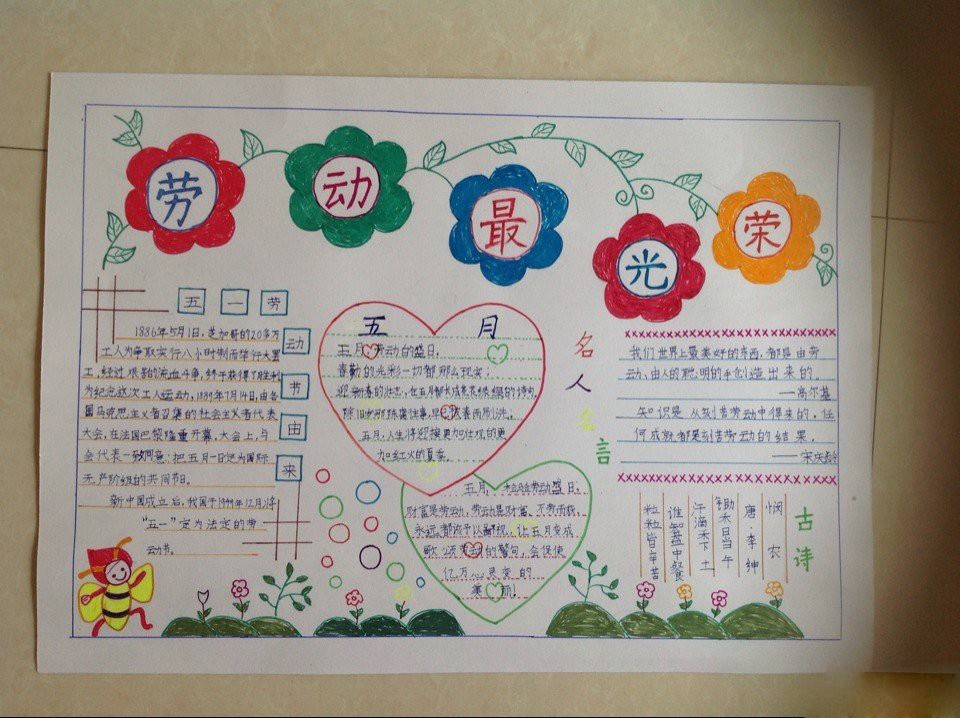 劳动最光荣
五一劳动节由来
1886年5月1日,芝加哥的20多万
工人为争取实行八小时制而举行大罢
工,经过艰苦的流血斗争,终于获得了胜利
为纪念这次工人运动,1889年7月14日,由各
国马克思主义者召集的社会主义者代表
大会,在法国巴黎隆重开幕,大会上,与
会代表一致同意:把五月一日定为国际
无产阶级的共同节。
新中国成立后,我国于1949年12月将
“五一”定为法定的劳
动节。
五月
五月劳动的盛日,
喜勤的光彩一切都那么现实;
五月,人生将迎接更加壮观的更
加红火的夏季。
五月,劳动盛日:
财富是劳动,劳动是财富,不劳而获,
永远都该予以鄙视,让五月变成
歌颂劳动的警句,会促使
亿万心灵变的
美丽!
名人名言
我们世界上最美好的东西,都是由劳
动、由人的聪明的手创造出来的。
——高尔基
知识是从刻苦劳动中得来的,任
何成就都是刻苦劳动的结果。
——宋庆龄
古诗
悯农
唐·李绅
锄禾日当午
汗滴禾下土
谁知盘中餐
粒粒皆辛苦